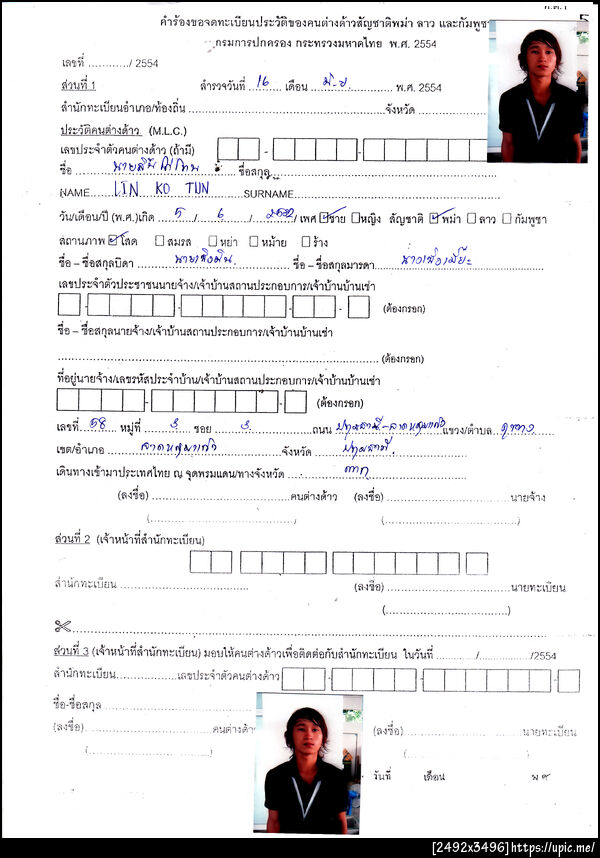 คำร้องขอจดทะเบียนประวัติของคนต่างด้าวสัญชาติพม่า ลาว และกัมพูชา
กรมการปกครอง กระทรวงมหาดไทย พ.ศ. 2554
เลขที่ ............/ 2554
ส่วนที่ 1 สำรวจวันที่ 16 เดือน มิ.ย. พ.ศ. 2554
สำนักทะเบียนอำเภอ/ท้องถิ่น จังหวัด
ประวัติคนต่างด้าว (M.L.C.)
เลขประจำตัวคนต่างด้าว (ถ้ามี)
ชื่อ ชื่อสกุล
NAME LIN KO TUN SURNAME
วัน/เดือน/ปี (พ.ศ.)เกิด 5 / 6 / 2532 / เพศ ชาย หญิง สัญชาติ พม่า ลาว กัมพูชา
สถานภาพ โสด สมรส หย่า หม้าย ร้าง
ชื่อ – ชื่อสกุลบิดา ชื่อ – ชื่อสกุลมารดา
เลขประจำตัวประชาชนนายจ้าง/เจ้าบ้านสถานประกอบการ/เจ้าบ้านบ้านเช่า
(ต้องกรอก)
ชื่อ – ชื่อสกุลนายจ้าง/เจ้าบ้านสถานประกอบการ/เจ้าบ้านบ้านเช่า
(ต้องกรอก)
ที่อยู่นายจ้าง/เลขรหัสประจำบ้าน/เจ้าบ้านสถานประกอบการ/เจ้าบ้านบ้านเช่า
(ต้องกรอก)
เลขที่ 58 หมู่ที่ 3 ซอย 3 ถนน ปทุมธานี-ลาดหลุมแก้ว แขวง/ตำบล คูขวาง
เขต/อำเภอ ลาดหลุมแก้ว จังหวัด ปทุมธานี
เดินทางเข้ามาประเทศไทย ณ จุดพรมแดน/ทางจังหวัด ตาก
(ลงชื่อ) คนต่างด้าว (ลงชื่อ) นายจ้าง
ส่วนที่ 2 (เจ้าหน้าที่สำนักทะเบียน)
สำนักทะเบียน (ลงชื่อ) นายทะเบียน
ส่วนที่ 3 (เจ้าหน้าที่สำนักทะเบียน) มอบให้คนต่างด้าวเพื่อติดต่อกับสำนักทะเบียน ในวันที่ ........../............../2554
สำนักทะเบียน เลขประจำตัวคนต่างด้าว
ชื่อ-ชื่อสกุล
(ลงชื่อ) คนต่างด้าว (ลงชื่อ) นายทะเบียน
วันที่ เดือน พ.ศ.
[2492x3496]https://upic.me/